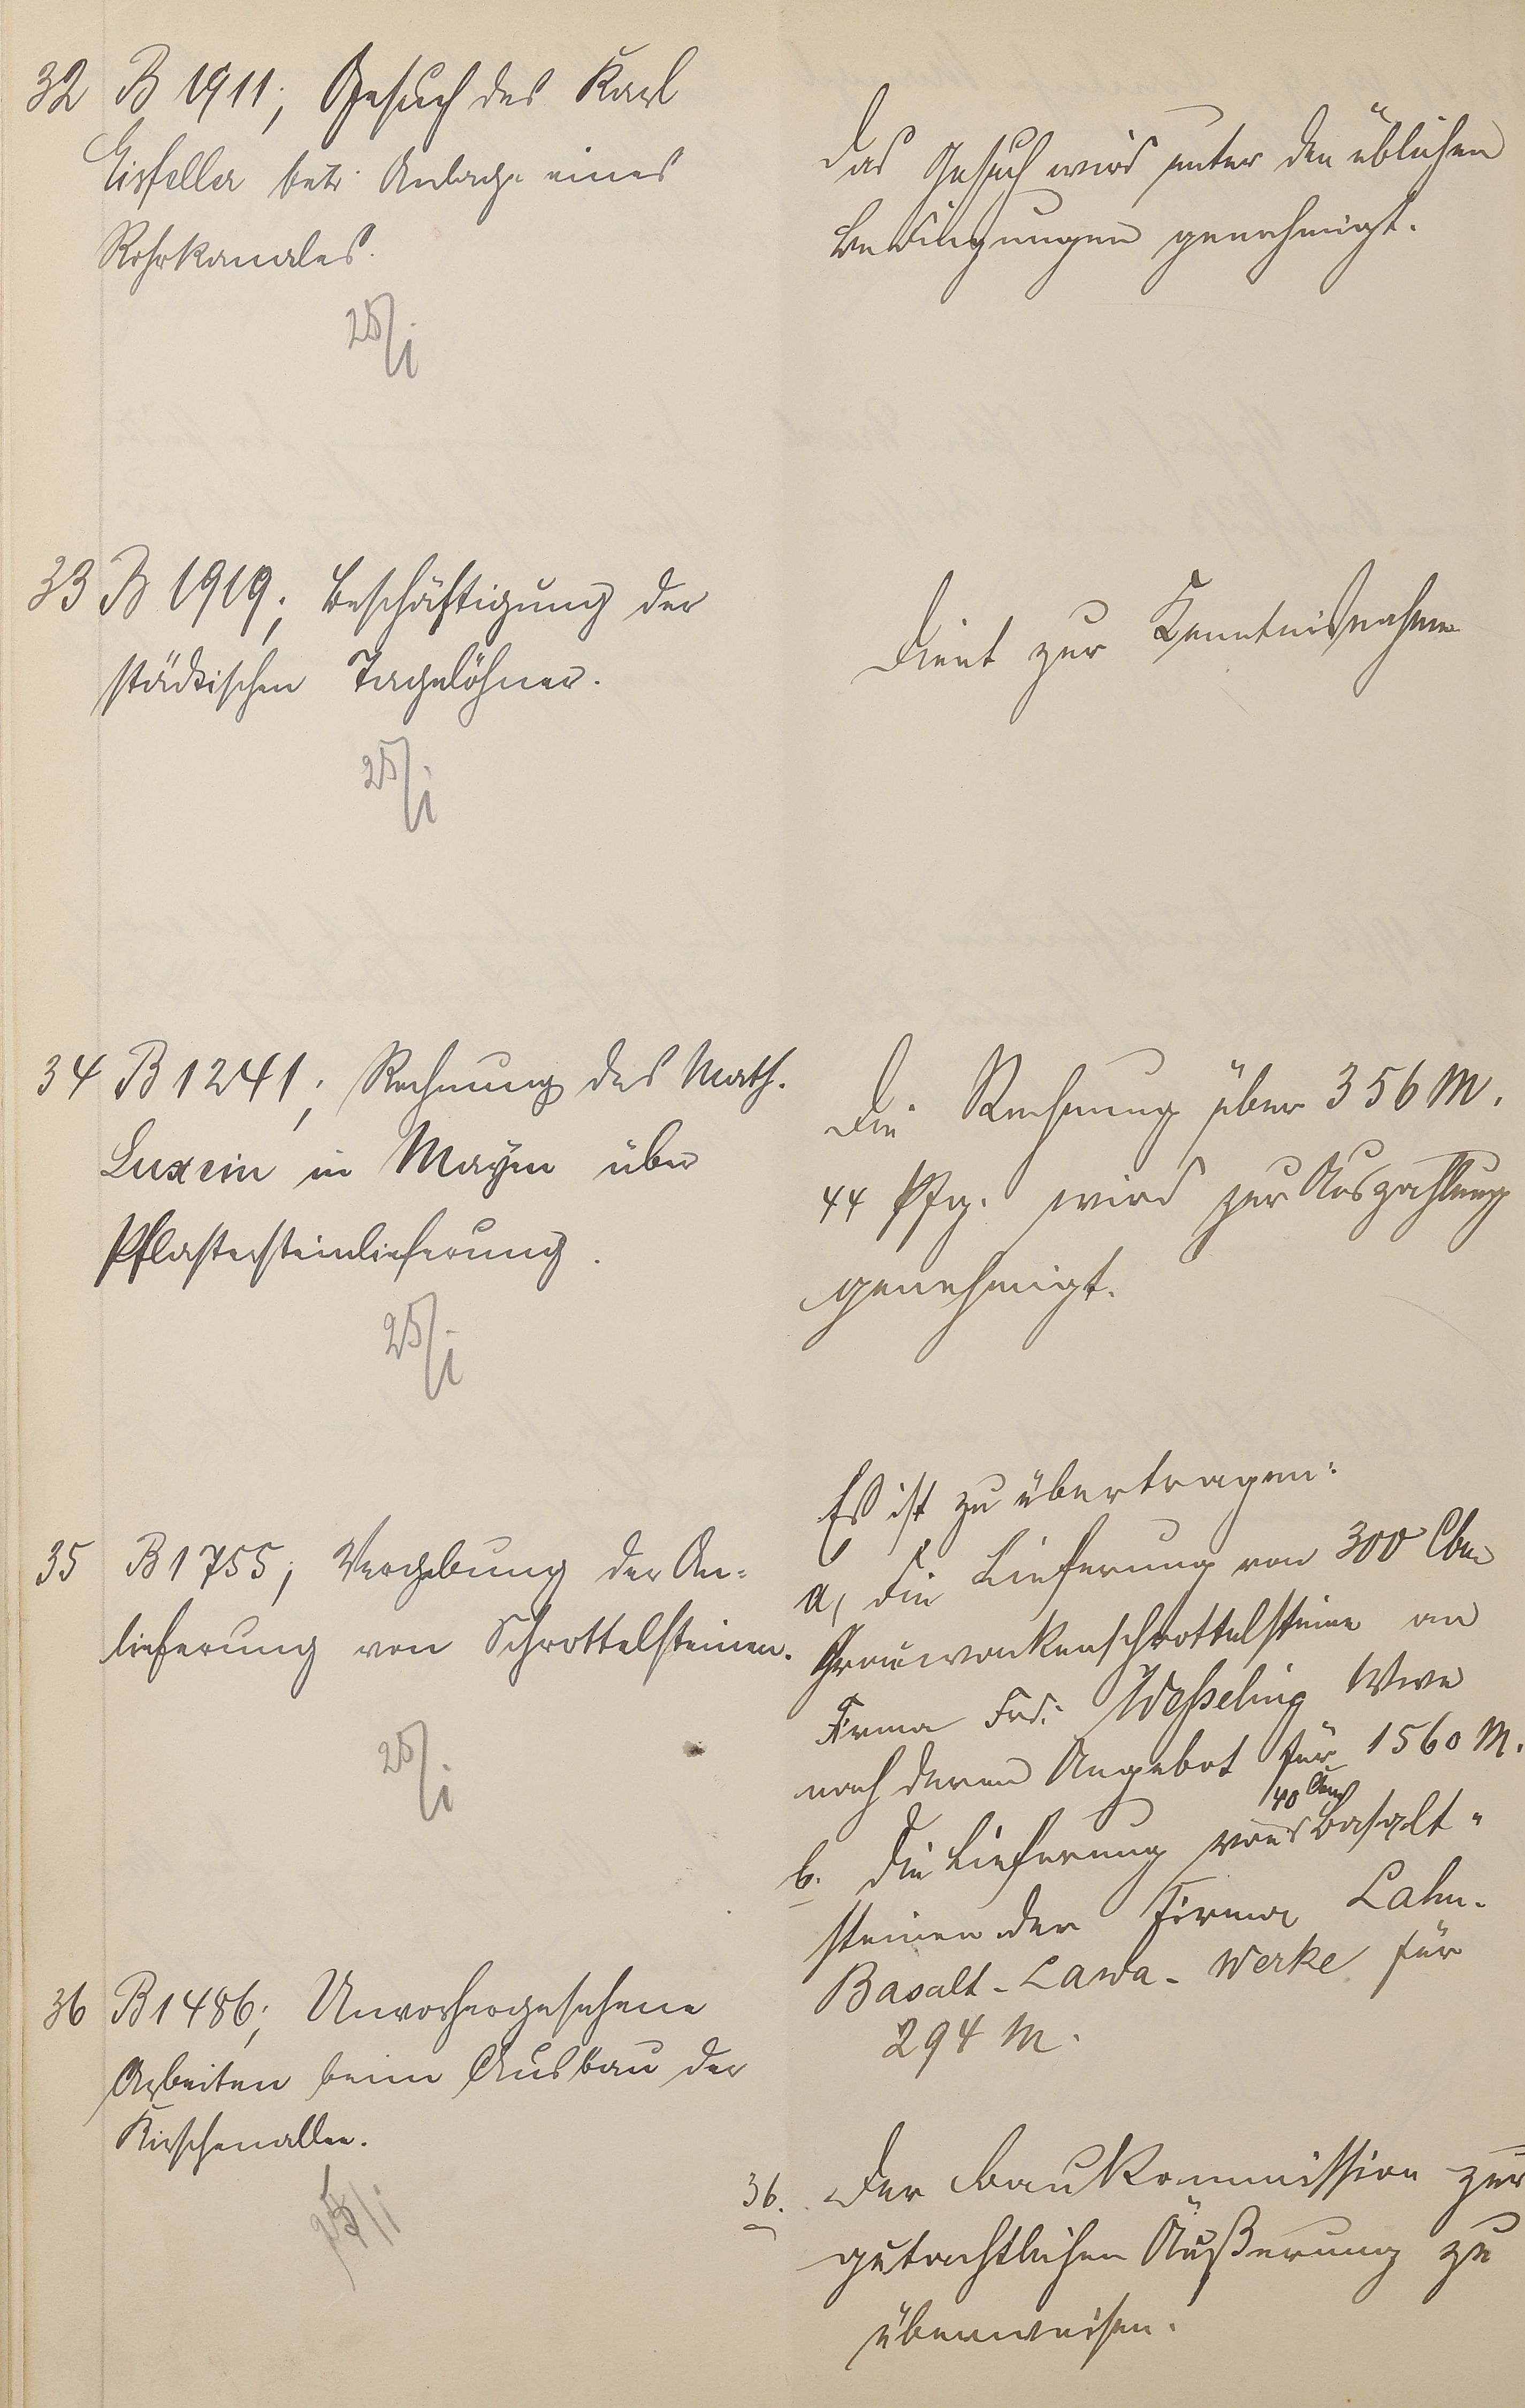 32 B 1911; Gesuch des Karl
Eisfeller betr. Anlage eines
Rohrkanales.
25/i
Das Gesuch wird unter den üblichen
Bedingungen genehmigt.
33 B 1919; Beschäftigung der
städtischen Tagelöhner.
25/i
Dient zur Kenntnisnahme
34 B 1241; Rechnung des Math.
Luxem in Mayen über
Pflastersteinlieferung.
25/i
Die Rechnung über 356 M.
44 Pfg. wird zur Auszahlung
genehmigt.
35 B 1755; Vergebung der An-
lieferung von Schrottelsteinen.
25/i
Es ist zu übertragen:
a, die Lieferung von 300 Cbm
Grauwackenschrottelsteine an
Firma Frd. Weßeling Wwe
nach deren Angebot für 1560 M.
40 Cbm
b. die Lieferung von Basalt-
steinen der Firma Lahn-
Basalt-Lawa-Werke für
294 M.
36 B 1486; Unvorhergesehene
Arbeiten beim Ausbau der
Kirschenallee.
25/i
36. Der Baukommission zur
gutachtlichen Äußerung zu
überweisen.